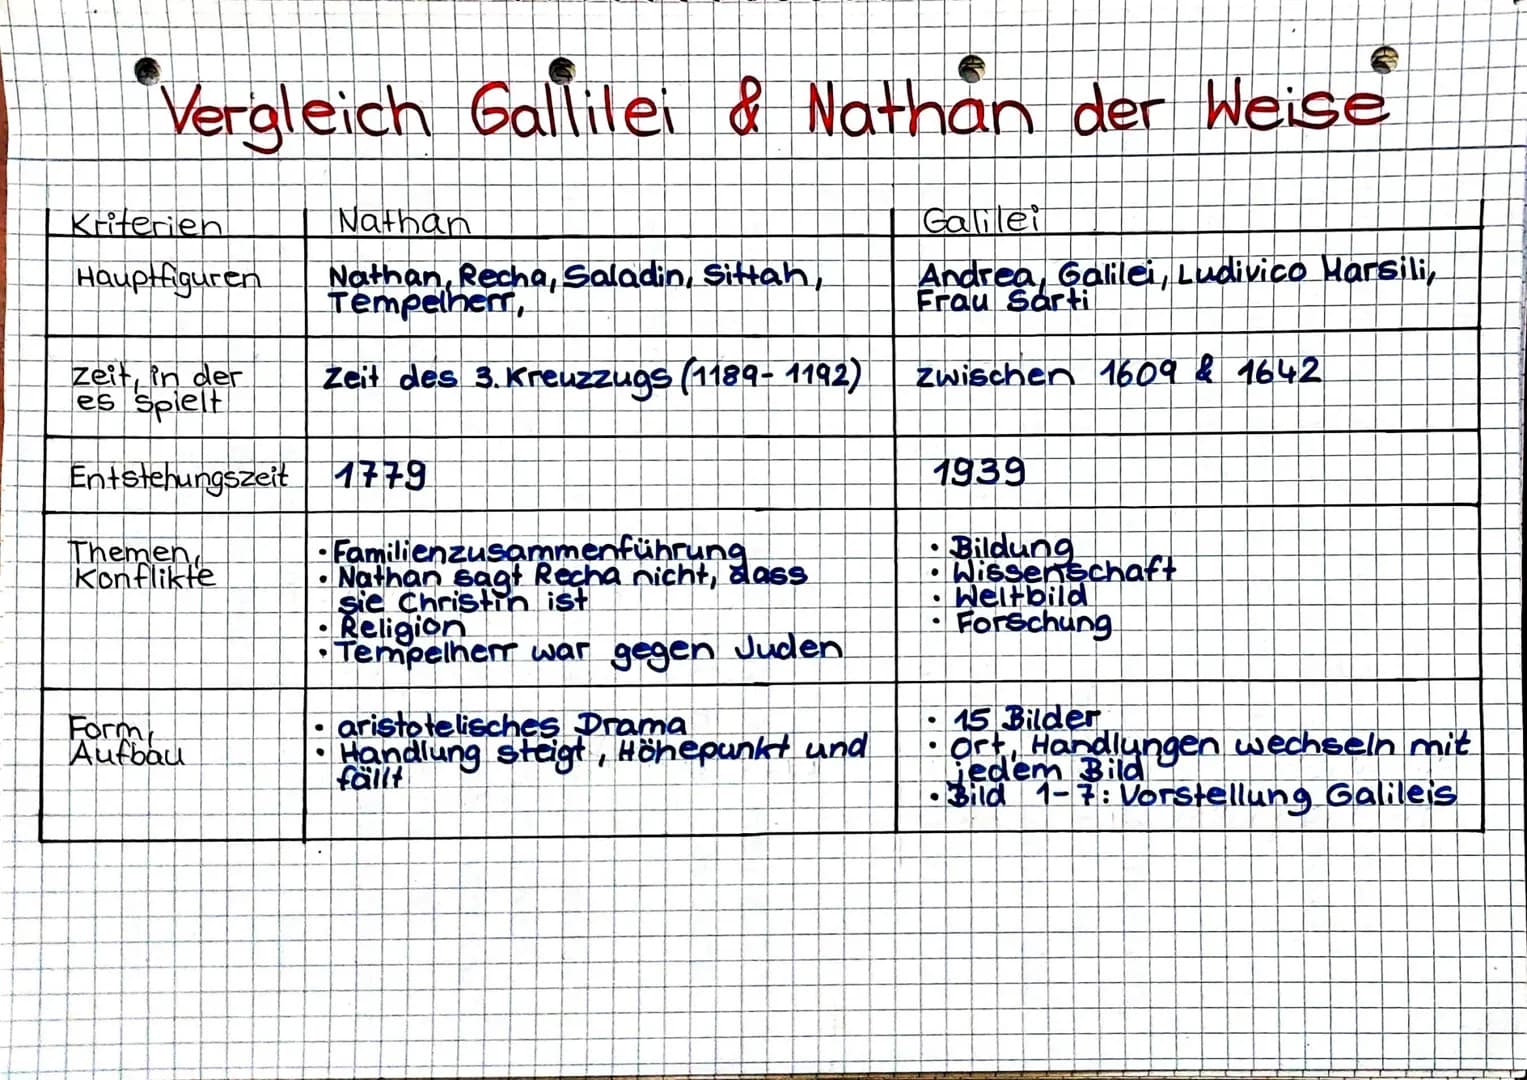 Vergleich Gallilei & Nathan der Weise
Kriterien
Nathan
Galilei
Hauptfiguren
Nathan, Recha, Saladin, Sittah,
Tempelherr,
Andrea, Galilei, Ludivico Marsili,
Frau Sarti
Zeit, in der
es spielt
Zeit des 3. Kreuzzugs (1189- 1192)
zwischen 1609 & 1642
Entstehungszeit
1779
1939
Themen,
Konflikte
• Familienzusammenführung
• Nathan sagt Recha nicht, dass
sie Christin ist
• Religion
• Tempelherr war gegen Juden
• Bildung
• Wissenschaft
• Weltbild
• Forschung
Form,
Aufbau
• aristotelisches Drama
• Handlung steigt, Höhepunkt und
fällt
• 15 Bilder
• Ort, Handlungen wechseln mit
jedem Bild
• Bild 1-7: Vorstellung Galileis